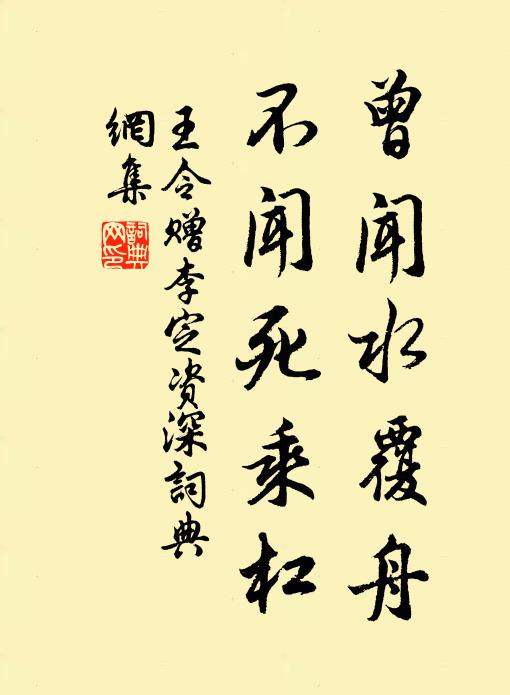 曾闻水覆舟
不闻死乘杠
王令赠李定资深詞典
網集
詞典
网印